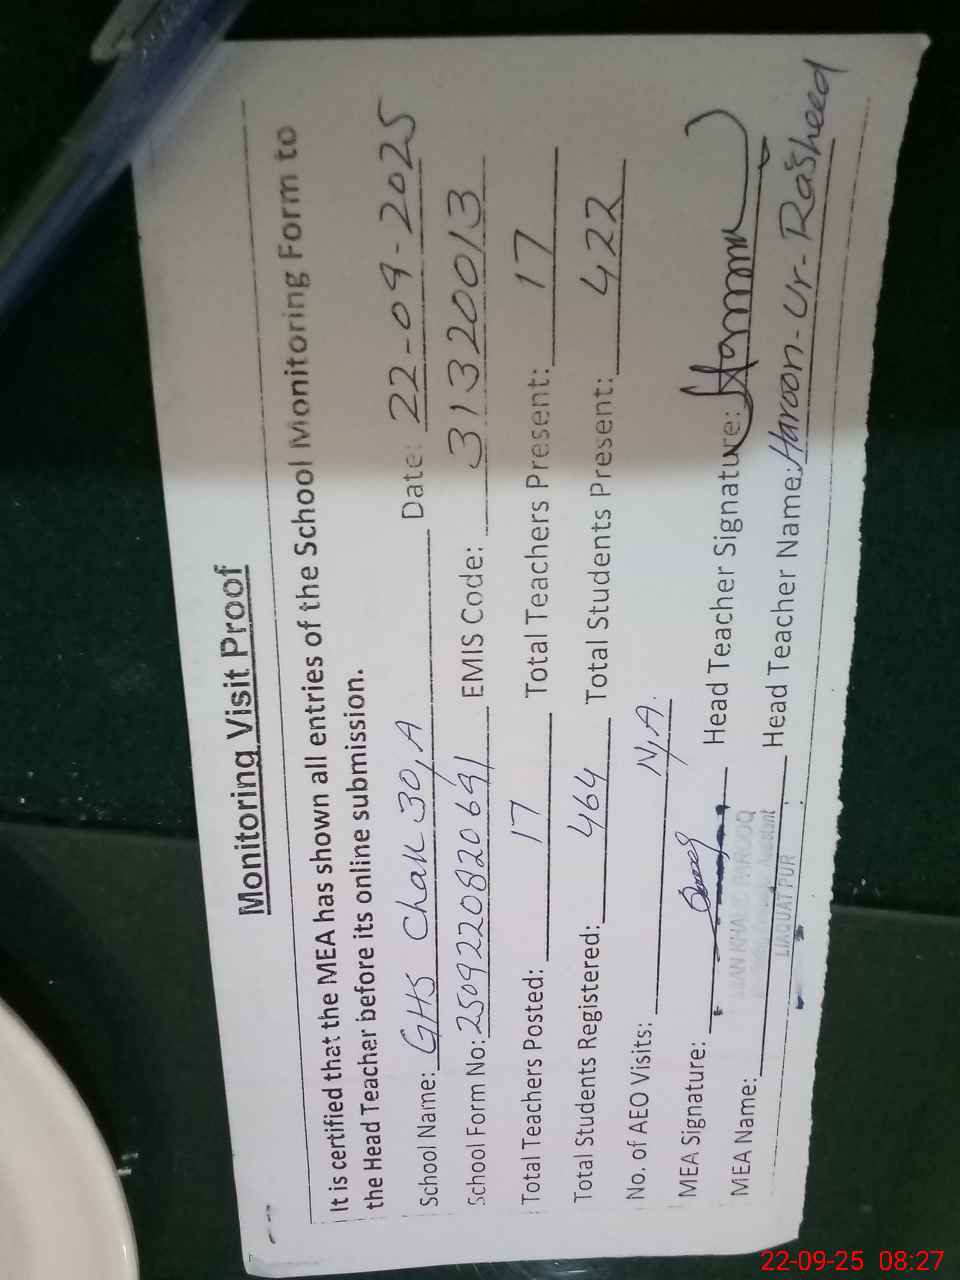 Monitoring Visit Proof
It is certified that the MEA has shown all entries of the School Monitoring Form to
the Head Teacher before its online submission.
School Name: GHS Chak 30,A Date: 22-09-2025
School Form No: 2509220820691 EMIS Code: 31320013
Total Teachers Posted: 17 Total Teachers Present: 17
Total Students Registered: 464 Total Students Present: 422
No. of AEO Visits: N,A.
MEA Signature: Head Teacher Signature:
MIAN KHALID FAROOQ
MEA Name: Head Teacher Name: Haroon-Ur-Rasheed
LIAQUATPUR
22-09-25 08:27